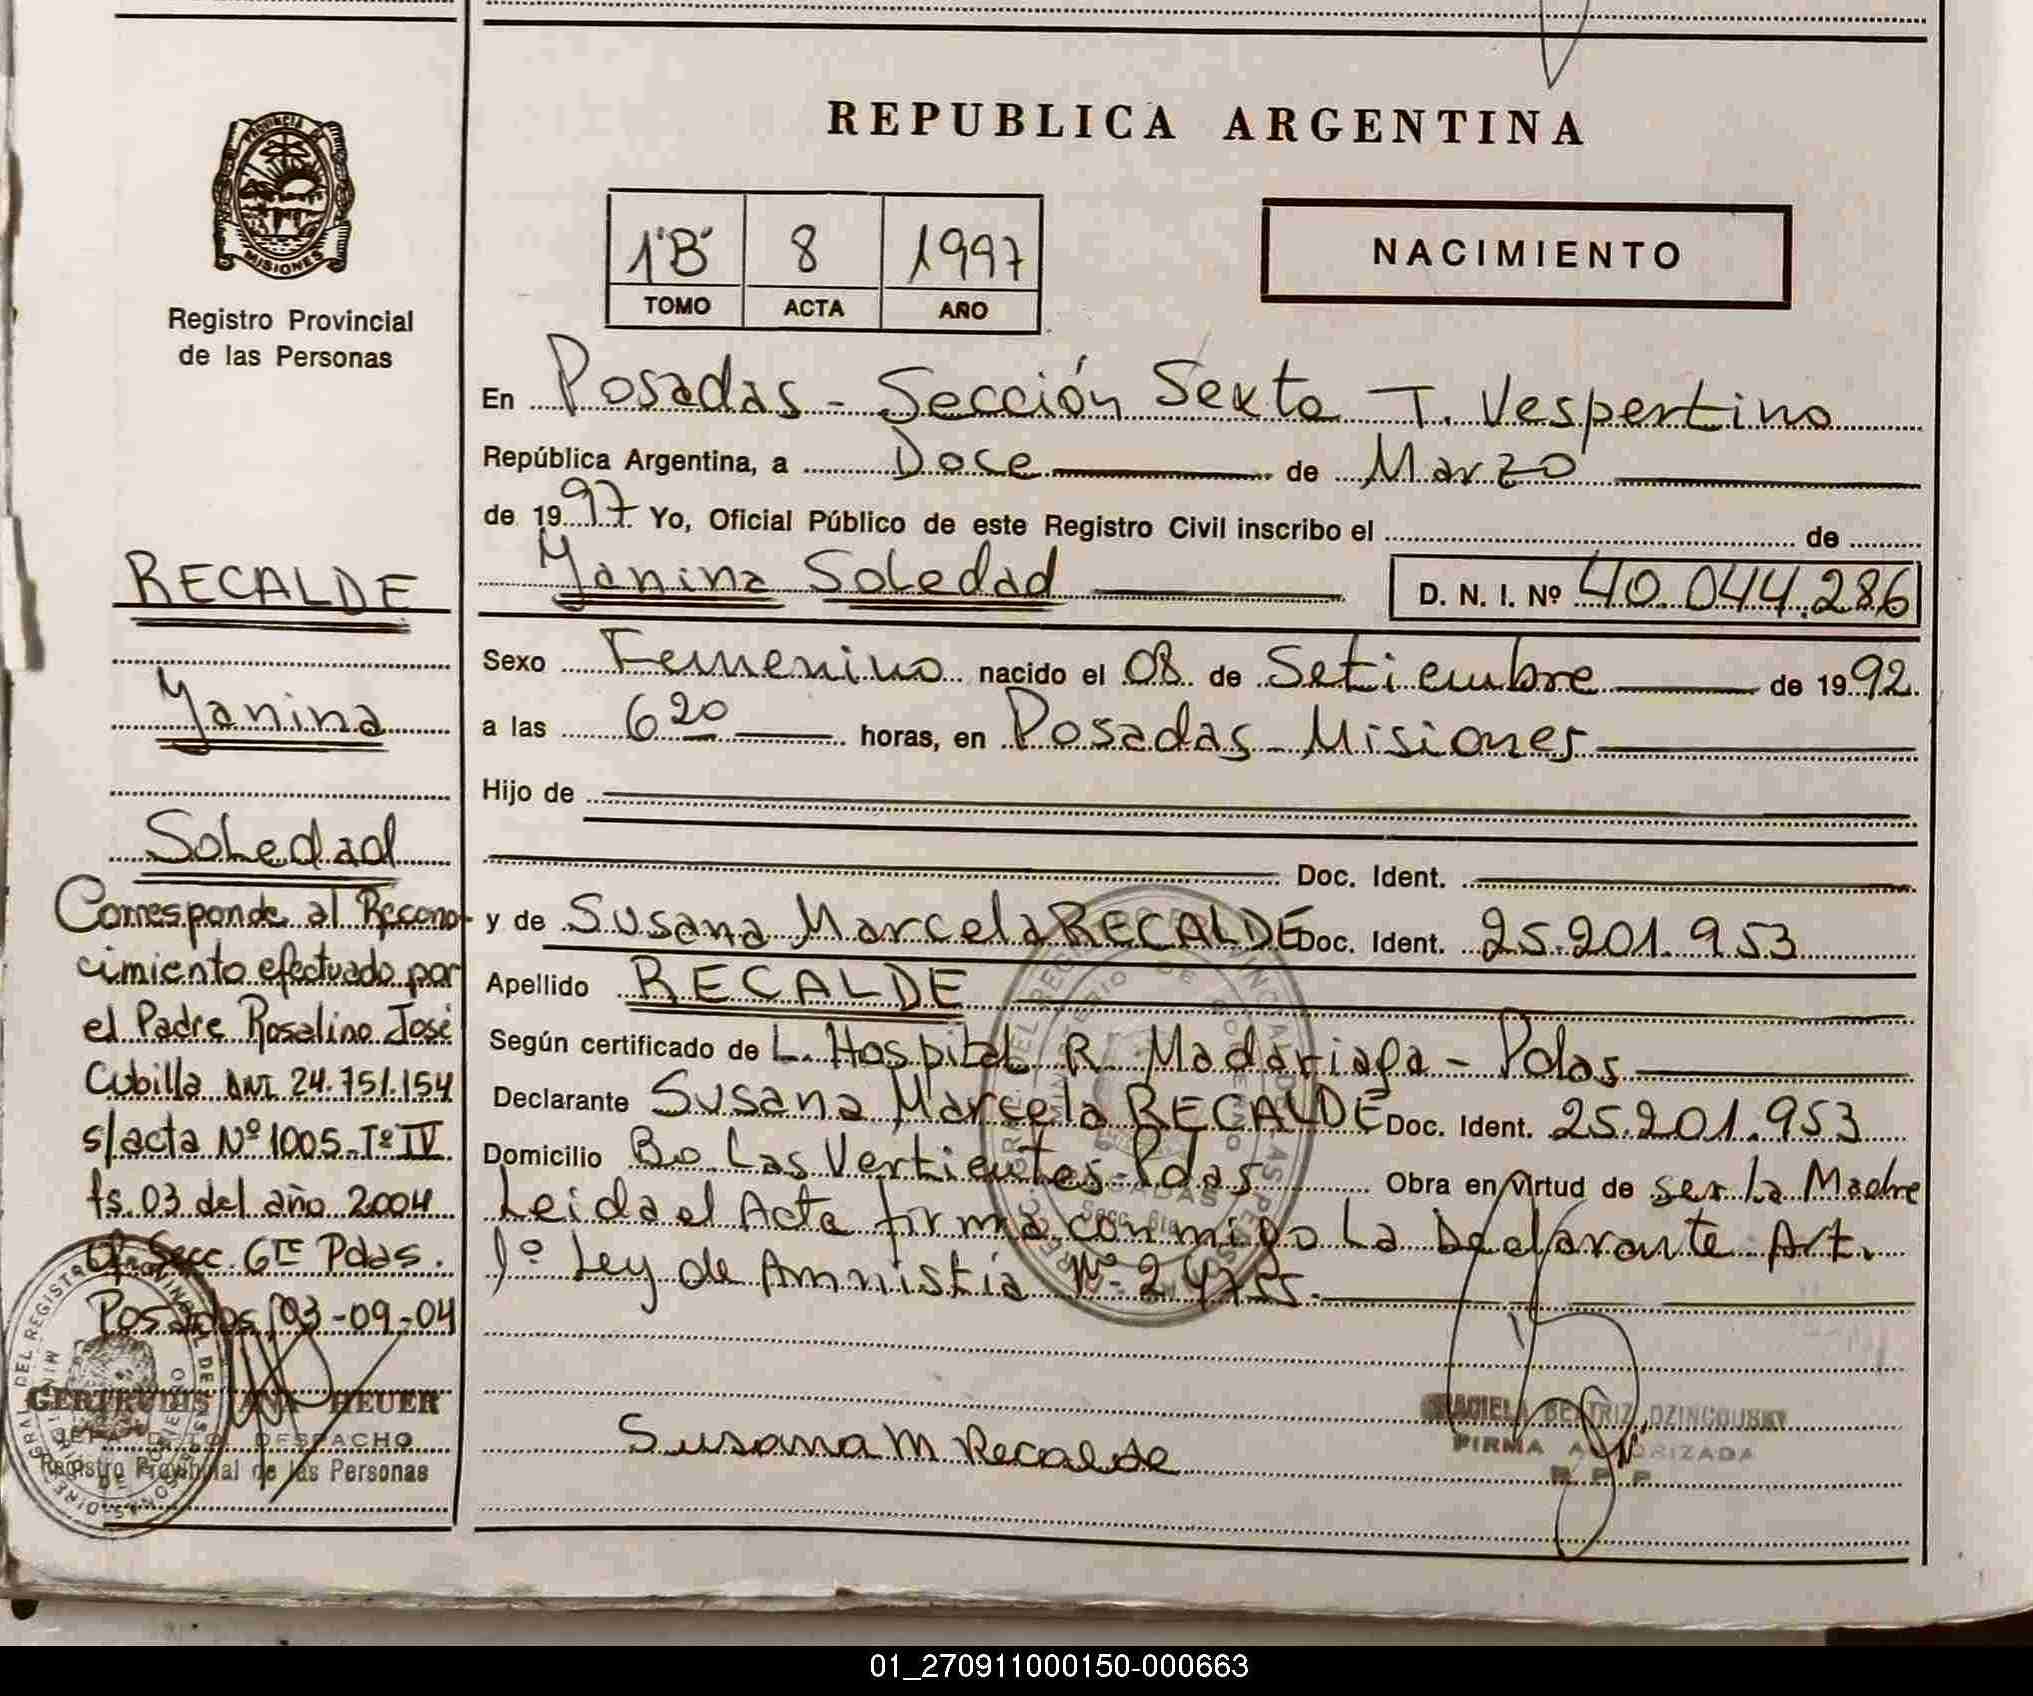 PROVINCIA DE
MISIONES
Registro Provincial
de las Personas
RECALDE
Yanina
Soledad
Corresponde al Recono-
cimiento efectuado por
el Padre Rosalino José
Cubilla DNI 24.751.154
s/acta Nº 1005-Tº IV
fs. 03 del año 2004
Of. Secc. 6ta Pdas.
Posadas, 03-09-04
GERTRUDIS ANA HEUER
JEFA DPTO. DESPACHO
Registro Provincial de las Personas
REPUBLICA ARGENTINA
1"B" 8 1997
TOMO ACTA AÑO
NACIMIENTO
En Posadas - Sección Sexta T. Vespertino
República Argentina, a Doce de Marzo
de 1997 Yo, Oficial Público de este Registro Civil inscribo el de
Yanina Soledad D. N. I. Nº 40.044.286
Sexo Femenino nacido el 08 de Setiembre de 1992
a las 6 20 horas, en Posadas Misiones
Hijo de
Doc. Ident.
y de Susana Marcela RECALDE Doc. Ident. 25.201.953
Apellido RECALDE
Según certificado de L. Hospital R. Madariaga - Pdas
Declarante Susana Marcela RECALDE Doc. Ident. 25.201.953
Domicilio Bo. Las Vertientes - Pdas Obra en virtud de ser la Madre
Leida el Acta firma conmigo la Declarante Art.
1º Ley de Amnistia Nº 24755.
Susana M Recalde
BEATRIZ DZINCOUSKY
FIRMA AUTORIZADA
R. P. P.
01_270911000150-000663